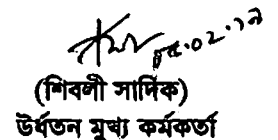 ০৫.০২.১৯
(শিবলী সার্দিক)
উর্ধতন মুখ্য কর্মকর্তা